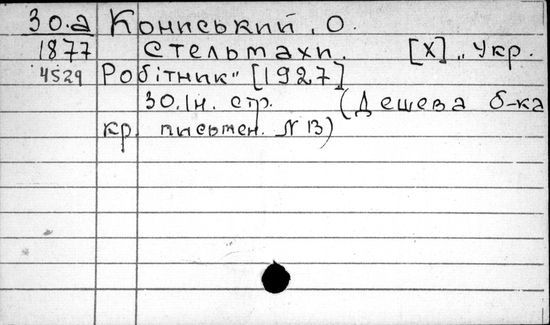 30.а Кониський, О.
1877 Стельмахи. [Х] „Укр.
4529 Робітник" [1927]
30.Iн. стр. (Дешева б-ка
кр. письмен. N 13)